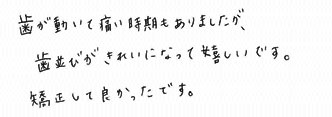 歯が動いて痛い時期もありましたが、
歯並びがきれいになって嬉しいです。
矯正して良かったです。